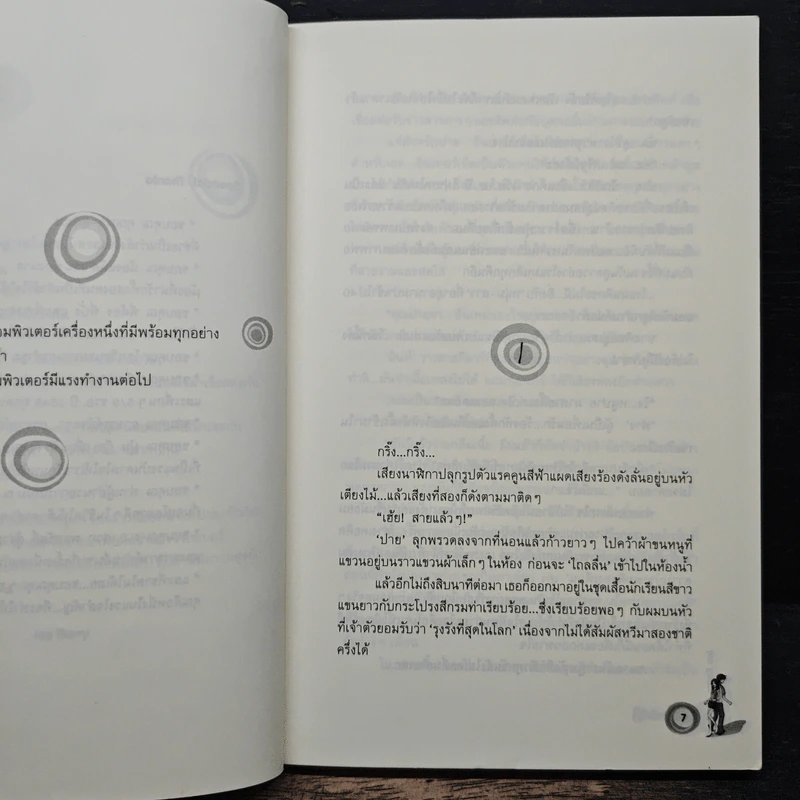 มพิวเตอร์เครื่องหนึ่งที่มีพร้อมทุกอย่าง
พิวเตอร์มีแรงทำงานต่อไป
1
กริ๊ง...กริ๊ง...
เสียงนาฬิกาปลุกรูปตัวแรคคูนสีฟ้าแผดเสียงร้องดังลั่นอยู่บนหัว
เตียงไม้...แล้วเสียงที่สองก็ดังตามมาติดๆ
“เฮ้ย! สายแล้วๆ!”
‘ปาย’ ลุกพรวดลงจากที่นอนแล้วก้าวยาวๆ ไปคว้าผ้าขนหนูที่
แขวนอยู่บนราวแขวนผ้าเล็กๆ ในห้อง ก่อนจะ ‘ไถลลื่น’ เข้าไปในห้องน้ำ
แล้วอีกไม่ถึงสิบนาทีต่อมา เธอก็ออกมาอยู่ในชุดเสื้อนักเรียนสีขาว
แขนยาวกับกระโปรงสีกรมท่าเรียบร้อย...ซึ่งเรียบร้อยพอๆ กับผมบนหัว
ที่เจ้าตัวยอมรับว่า ‘รุงรังที่สุดในโลก’ เนื่องจากไม่ได้สัมผัสหวีมาสองชาติ
ครึ่งได้
7